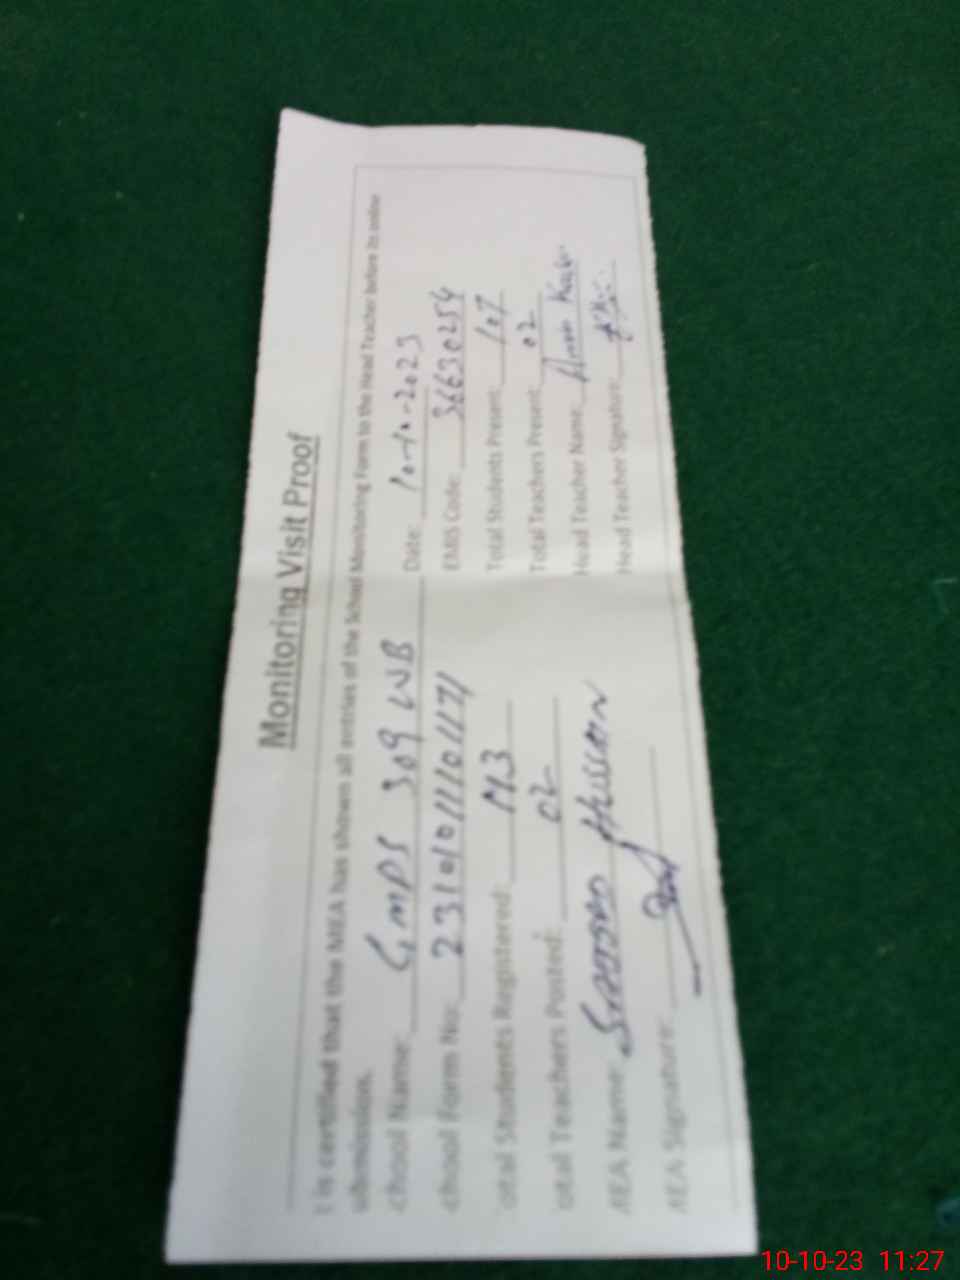 Monitoring Visit Proof
t is certified that the MEA has shown all entries of the School Monitoring Form to the Head Teacher before its online
ubmission.
chool Name: GMPS 309 WB Date: 10-10-2023
chool Form No: EMIS Code: 36630254
otal Students Registered: Total Students Present: 107
otal Teachers Posted: 02 Total Teachers Present: 02
MEA Name: Hussain Head Teacher Name:
MEA Signature: Head Teacher Signature:
10-10-23 11:27